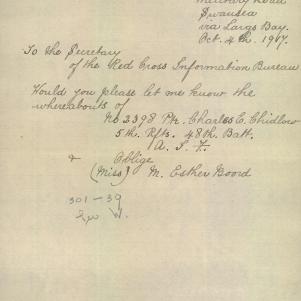 Military Road
Swansea
via Largs Bay.
Oct. 4th. 1917.
To the Secretary
of the Red Cross Information Bureau
Would you please let me know the
whereabouts of
No 2398 Pte. Charles E. Chidlow
5th. Rfts. 48th. Batt.
A. I. F.
& Oblige
(Miss) M. Esther Boord
301-39